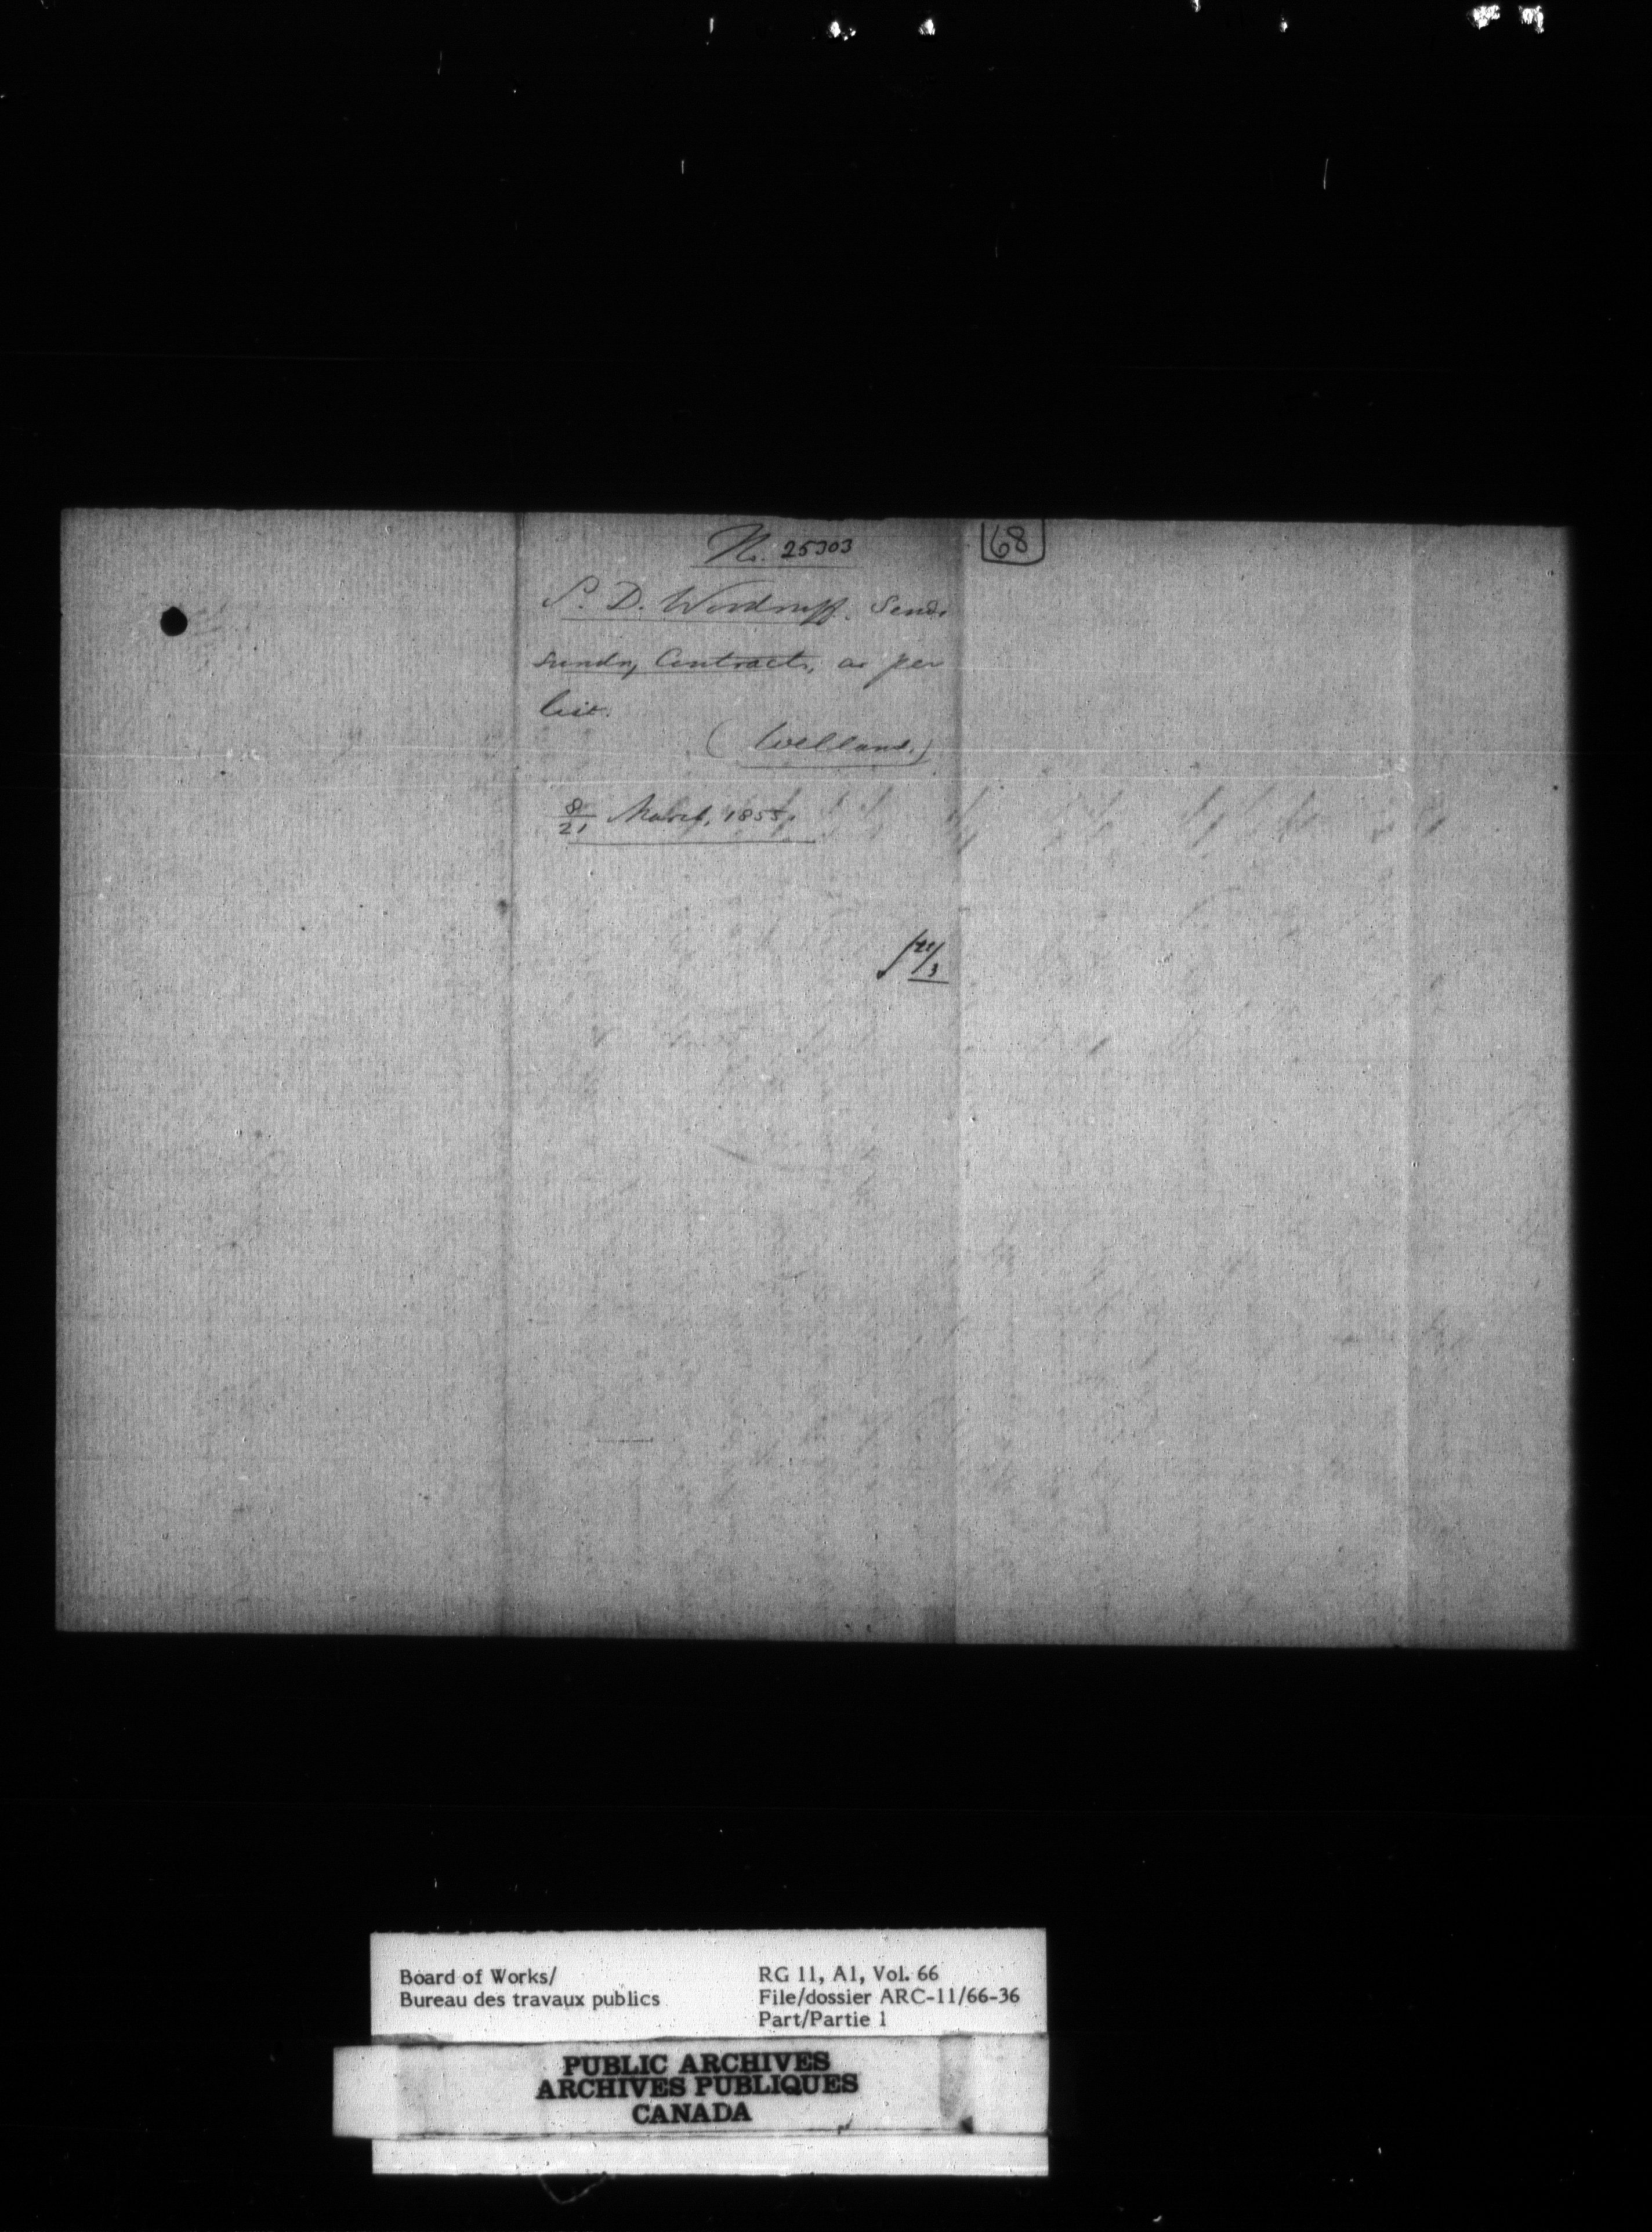 No. 25303
68
S. D. Woodruff. Sends
sundry Contracts, as per
list.
(Welland.)
8/21 March, 1855.
21/3
Board of Works/
Bureau des travaux publics
RG 11, A1, Vol. 66
File/dossier ARC-11/66-36
Part/Partie 1
PUBLIC ARCHIVES
ARCHIVES PUBLIQUES
CANADA